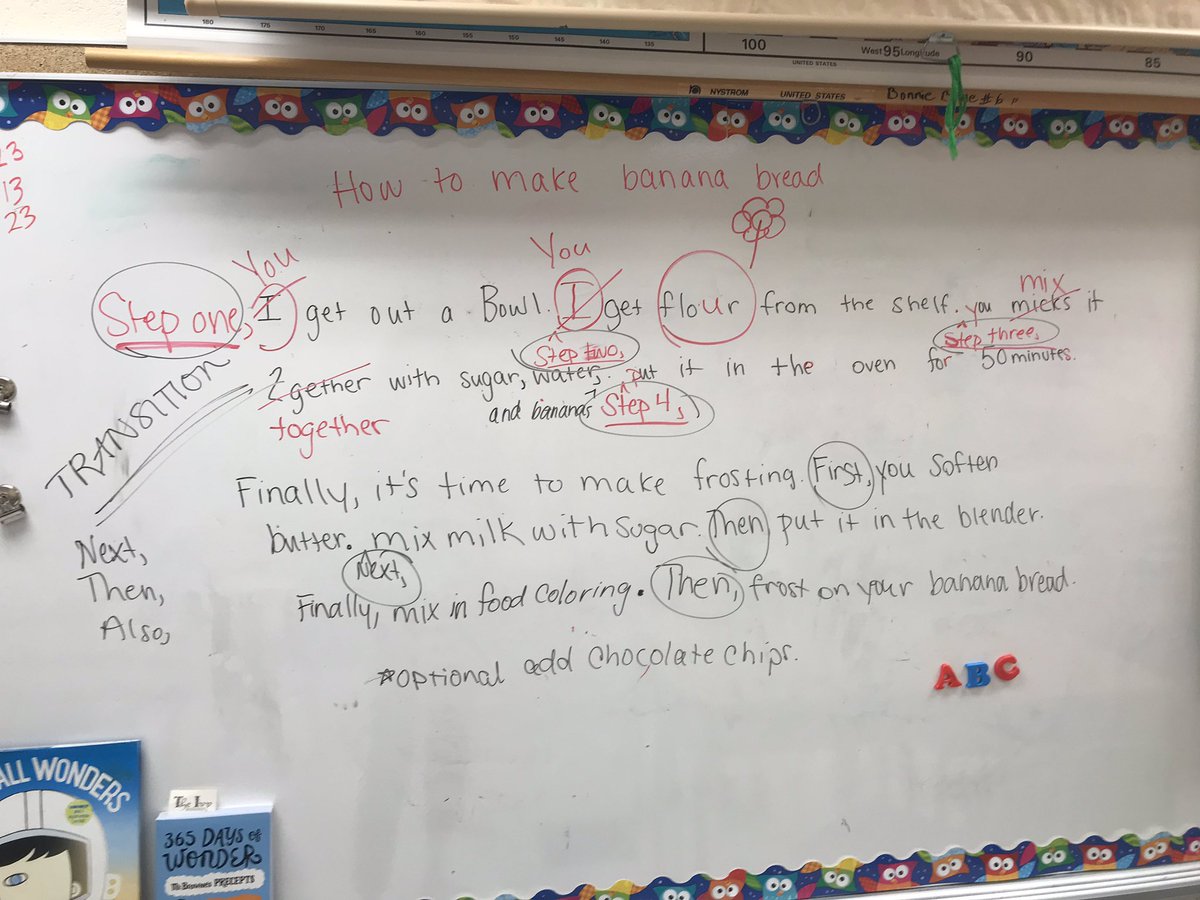 180 175 170 165 160 155 150 145 140 135
100 West 95 Longitude 90 85
UNITED STATES
NYSTROM UNITED STATES Bonnie #6
23
13
23
How to make banana bread
You You mix
Step one, I get out a Bowl. I get flour from the shelf. you micks it
Step two, Step three,
2gether with sugar, water, put it in the oven for 50 minutes.
together and bananas Step 4,
TRANSITION
Next,
Then,
Also,
Finally, it's time to make frosting. First, you soften
butter. mix milk with sugar. Then put it in the blender.
Next,
Finally, mix in food coloring. Then, frost on your banana bread.
*optional add chocolate chips.
ABC
ALL WONDERS
365 DAYS of
WONDER
Mr. Browne's PRECEPTS